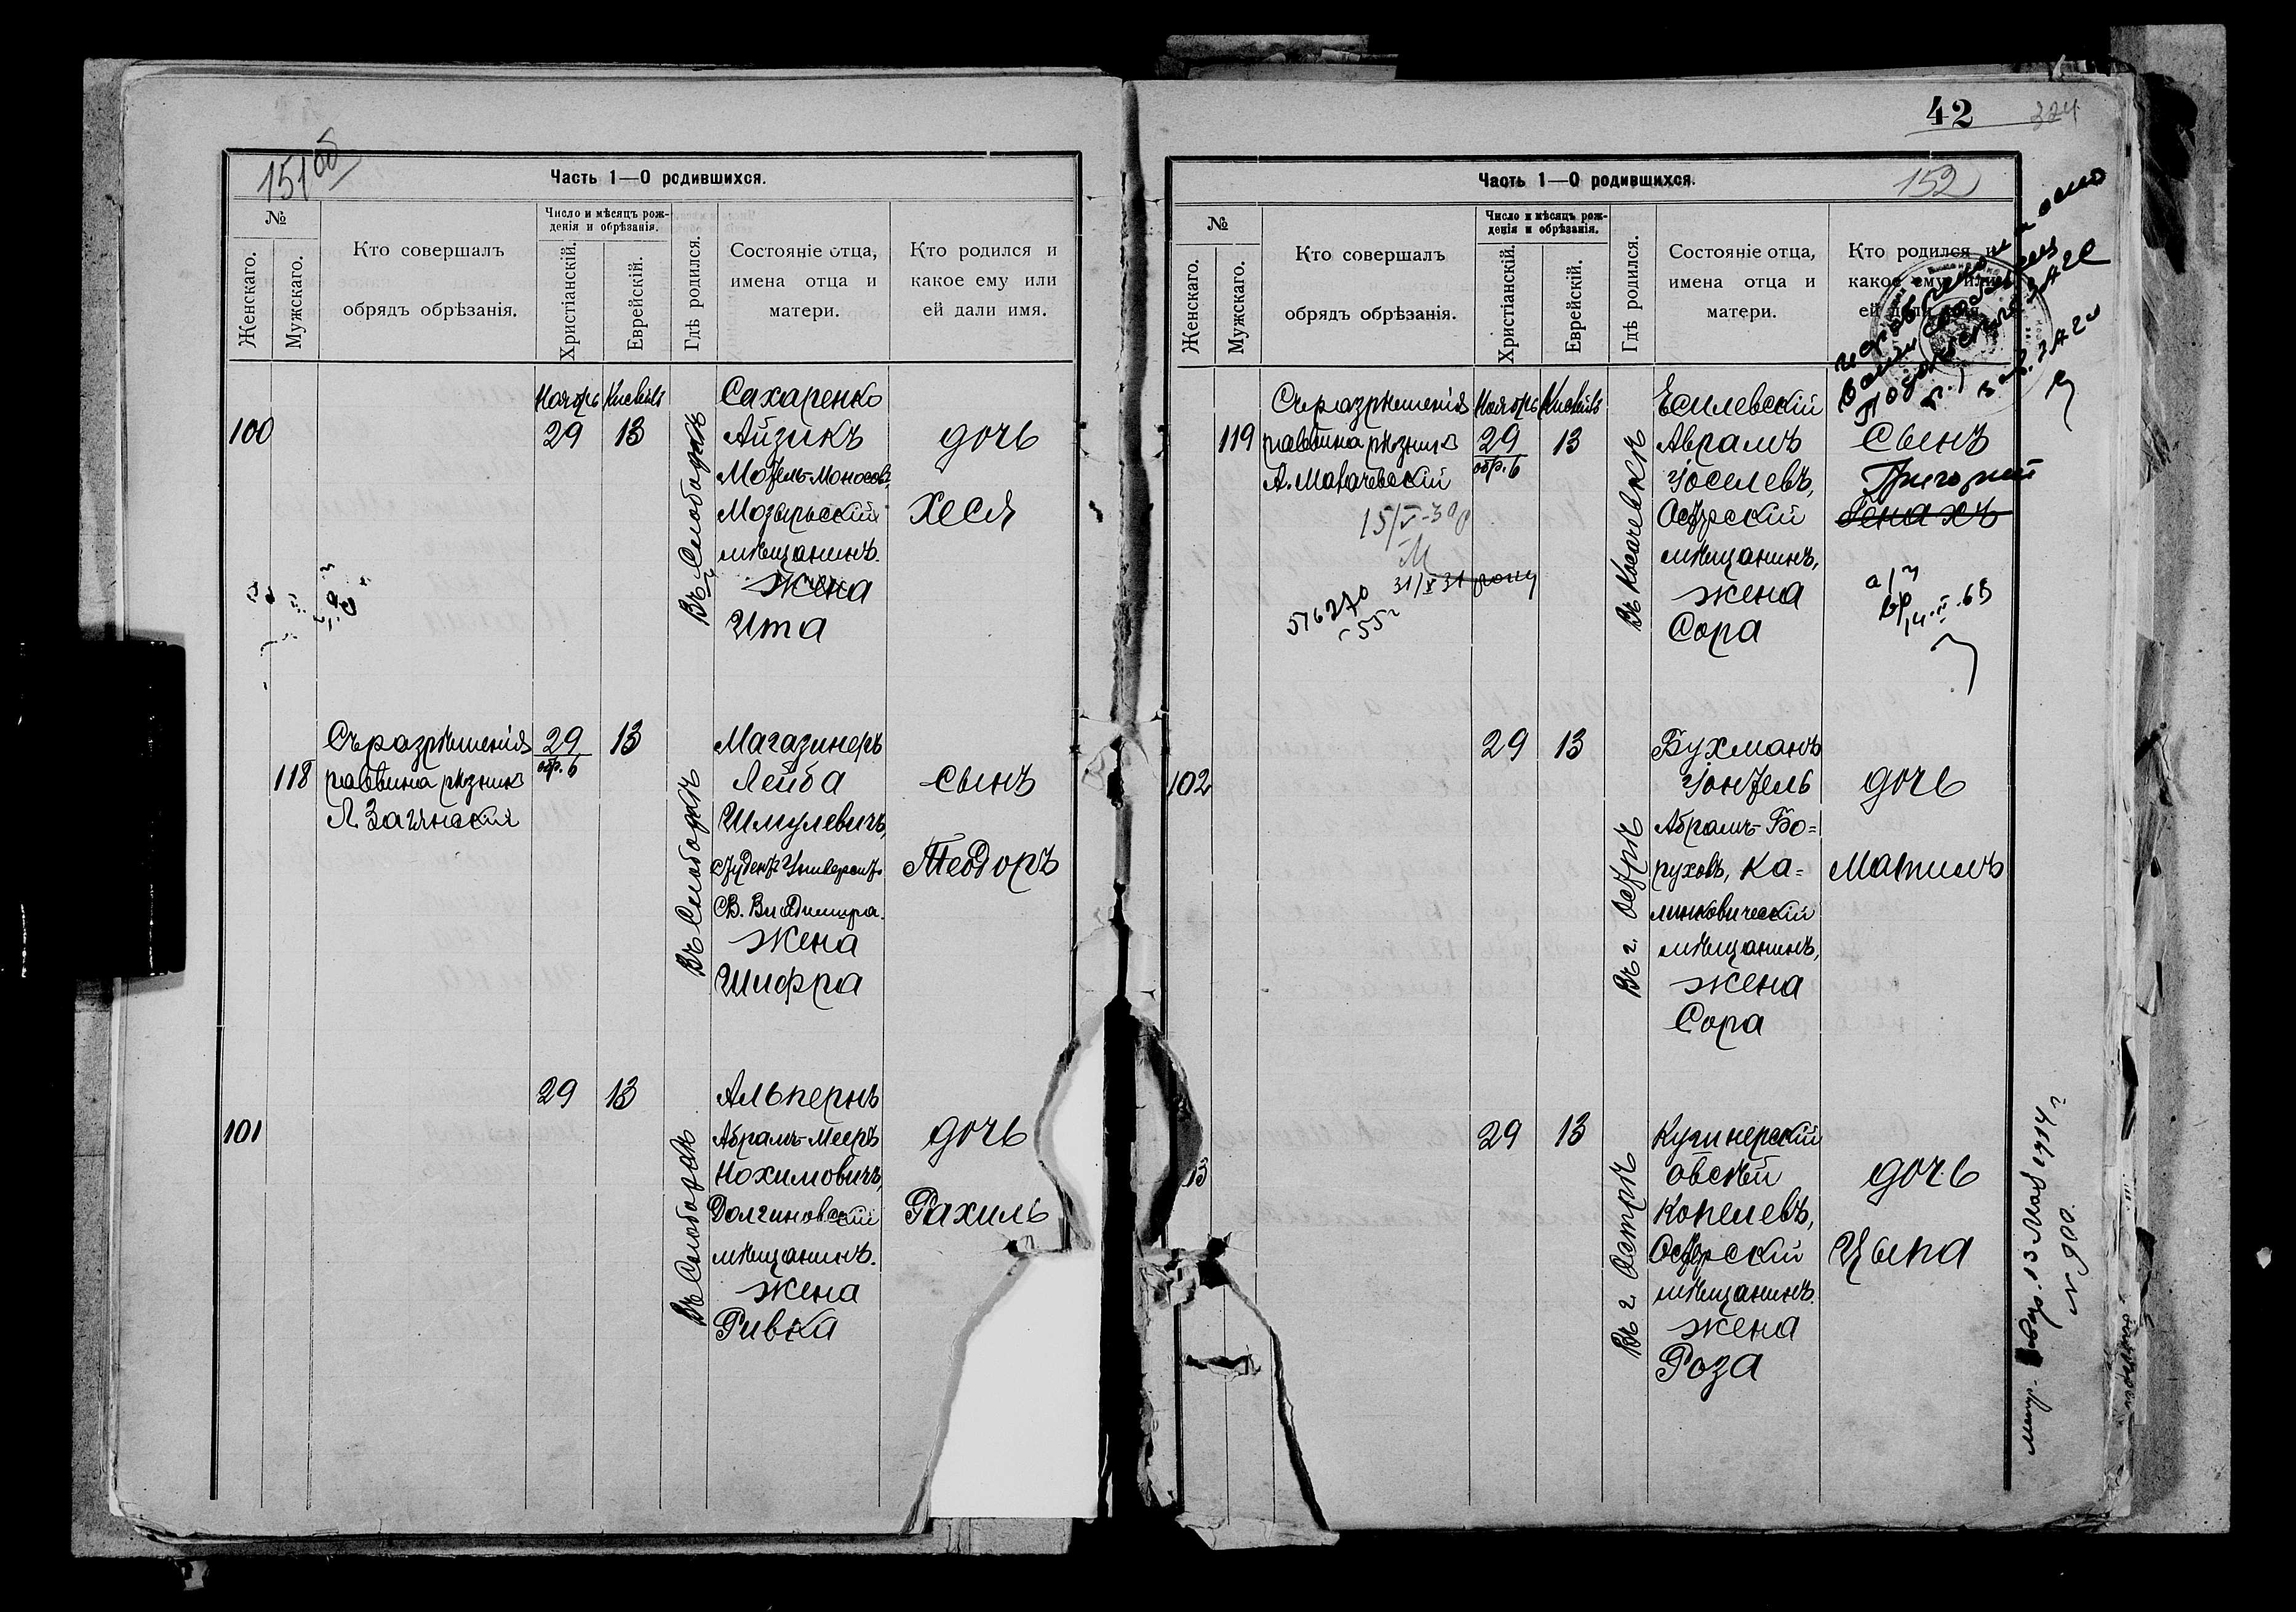 151 об
Часть 1—О родившихся.
№
Женскаго.
Мужскаго.
Кто совершалъ
обрядъ обрѣзанія.
Число и мѣсяцъ рож-
денія и обрѣзанія.
Христіанскій.
Еврейскій.
Гдѣ родился.
Состояніе отца,
имена отца и
матери.
Кто родился и
какое ему или
ей дали имя.
100
Ноябрь
29
Кислевъ
13
Въ Слободкѣ
Сахаренко
Айзикъ
Мотель-Моносовъ,
Мозырьскій
мѣщанинъ.
Жена
Ита
дочь
Хеся
118
Съ разрѣшенія
раввина рѣзникъ
Л. Загянскій
29
обр. 6
13
Въ Слободкѣ
Магазинеръ
Лейба
Шмулевичъ,
студентъ Университ.
Св. Владимира.
Жена
Шифра
сынъ
Теодоръ
101
29
13
Въ Слободкѣ
Альпернъ
Абрамъ-Мееръ
Нохимовичъ,
Долгиновскій
мѣщанинъ.
Жена
Ривка
дочь
Рахиль
42
324
152
Часть 1—О родившихся.
№
Женскаго.
Мужскаго.
Кто совершалъ
обрядъ обрѣзанія.
Число и мѣсяцъ рож-
денія и обрѣзанія.
Христіанскій.
Еврейскій.
Гдѣ родился.
Состояніе отца,
имена отца и
матери.
Кто родился и
какое ему или
ей дали имя.
119
Съ разрѣшенія
раввина рѣзникъ
А. Макачевскій
Ноябрь
29
обр. 6
Кислевъ
13
Въ Косачевкѣ
Есилевскій
Аврамъ
Іоселевъ,
Остерскій
мѣщанинъ,
жена
Сора
сынъ
Григорий
102
29
13
Въ г. Острѣ
Бухманъ
Іонтель
Абрамъ-Бо-
руховъ, Ка-
линковическій
мѣщанинъ,
жена
Сора
дочь
Матиль
3
29
13
Въ г. Острѣ
Кушнерскій
Овсѣй
Копелевъ,
Остерскій
мѣщанинъ.
жена
Роза
дочь
Цыпа
13 Мая 1914 г
№ 900.